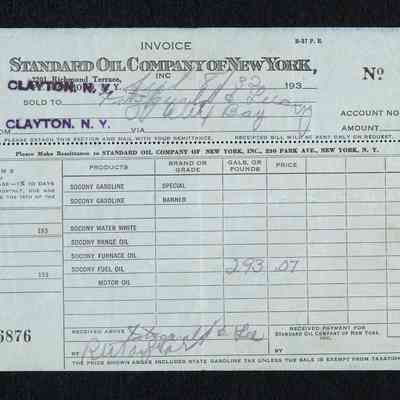 INVOICE
B-57 P. R.
STANDARD OIL COMPANY OF NEW YORK,
INC
2201 Richmond Terrace,
CLAYTON, N. Y. N. Y. 193 Nº
SOLD TO
CLAYTON, N. Y.
FROM VIA AMOUNT
PLEASE DETACH THIS SECTION AND MAIL WITH YOUR REMITTANCE. RECEIPTED BILL WILL BE SENT ONLY ON REQUEST.
Please Make Remittances to STANDARD OIL COMPANY OF NEW YORK, INC., 230 PARK AVE., NEW YORK, N. Y.
PRODUCTS BRAND OR GRADE GALS. OR POUNDS PRICE
10 DAYS
SOCONY GASOLINE SPECIAL
SOCONY GASOLINE BANNER
193 SOCONY WATER WHITE
SOCONY RANGE OIL
SOCONY FURNACE OIL
193 SOCONY FUEL OIL 293 .07
MOTOR OIL
6876
RECEIVED ABOVE
RECEIVED PAYMENT FOR
STANDARD OIL COMPANY OF NEW YORK,
INC.
BY BY
THE PRICE SHOWN ABOVE INCLUDES STATE GASOLINE TAX UNLESS THE SALE IS EXEMPT FROM TAXATION